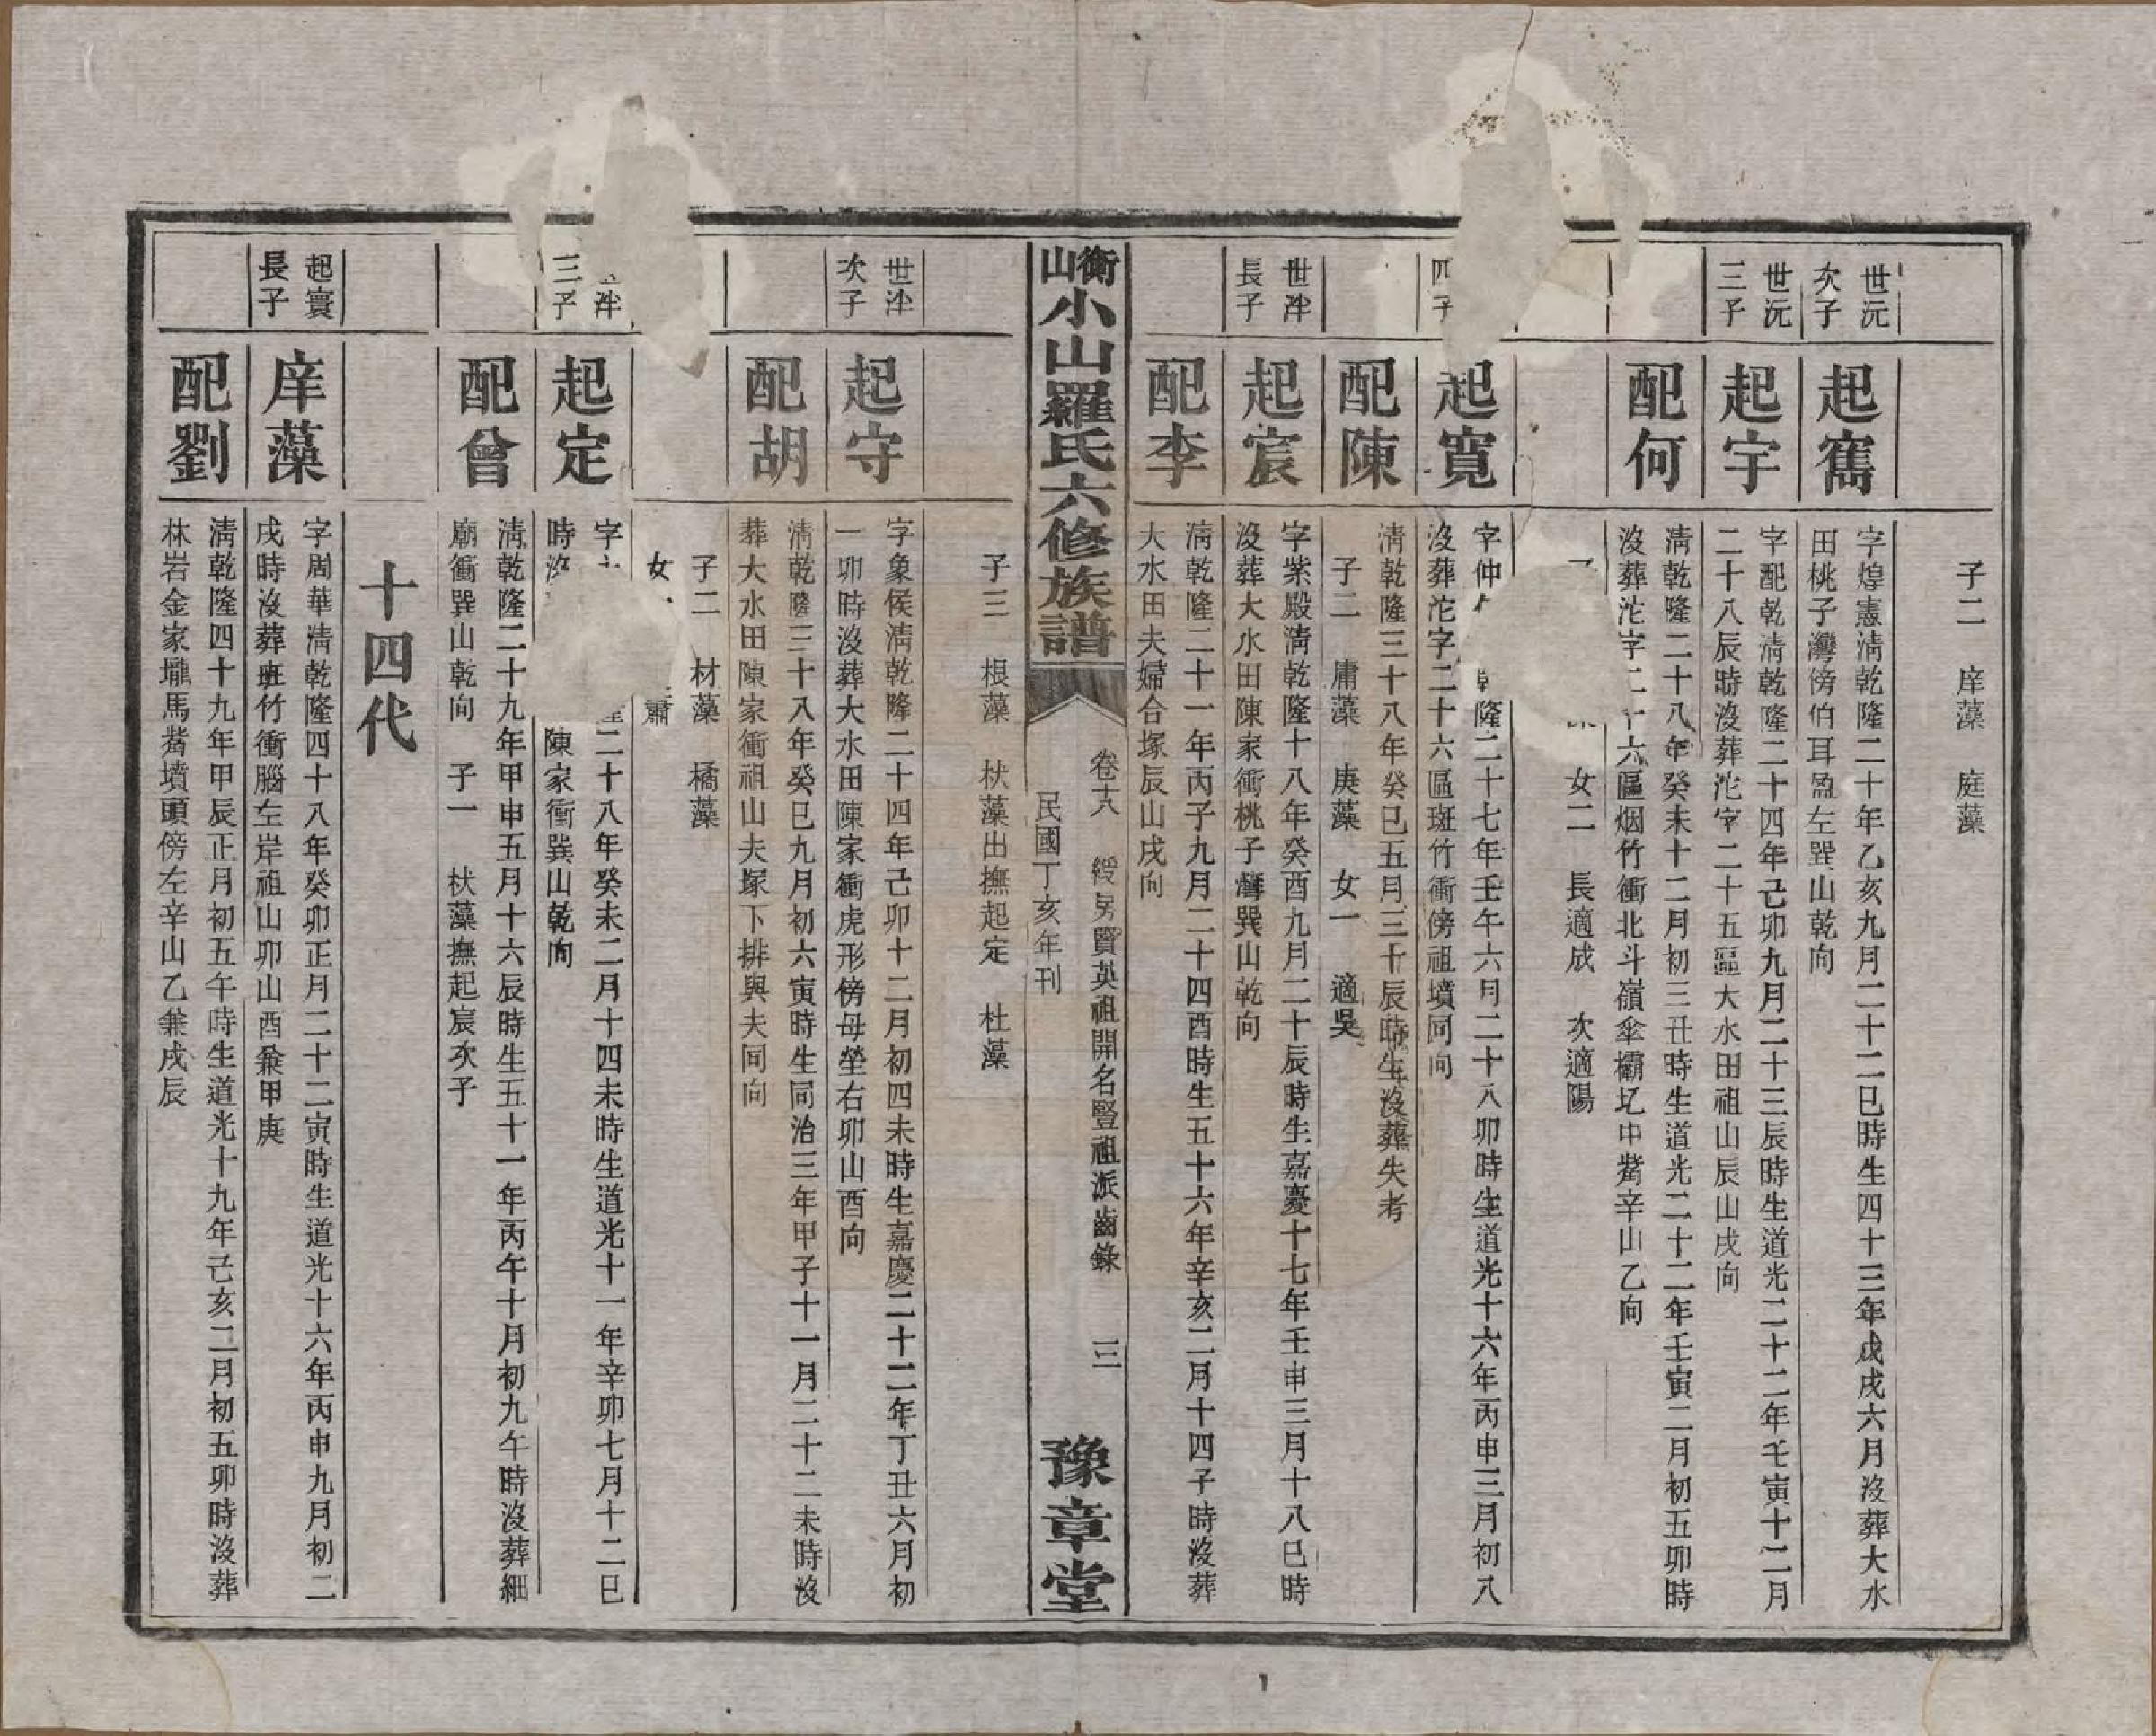 子二　庠藻　庭藻
世沅次子
起寯
字煌憲淸乾隆二十年乙亥九月二十二巳時生四十三年戊戌六月沒葬大水
田桃子灣傍伯耳盈左巽山乾向
世沅三子
起宇
字配乾淸乾隆二十四年己卯九月二十三辰時生道光二十二年壬寅十二月
二十八辰時沒葬沱字二十五區大水田祖山辰山戌向
配何
淸乾隆二十八年癸未十二月初三丑時生道光二十二年壬寅二月初五卯時
沒葬沱字二十六區烟竹衝北斗嶺傘欛圪中觜辛山乙向
女二　長適成　次適陽
四子
起寬
字仲　乾隆二十七年壬午六月二十八卯時生道光十六年丙申三月初八
沒葬沱字二十六區斑竹衝傍祖墳同向
配陳
淸乾隆三十八年癸巳五月三十辰時生沒葬失考
子二　庸藻　庚藻　女一　適吳
世泮長子
起宸
字紫殿淸乾隆十八年癸酉九月二十辰時生嘉慶十七年壬申三月十八巳時
沒葬大水田陳家衝桃子灣巽山乾向
配李
淸乾隆二十一年丙子九月二十四酉時生五十六年辛亥二月十四子時沒葬
大水田夫婦合塚辰山戌向
衡山小山羅氏六修族譜
卷十八　綬房賢英祖開名豎祖派齒錄　三
民國丁亥年刊
豫章堂
子三　根藻　栿藻出撫起定　杜藻
世泮次子
起守
字象侯淸乾隆二十四年己卯十二月初四未時生嘉慶二十二年丁丑六月初
一卯時沒葬大水田陳家衝虎形傍母塋右卯山酉向
配胡
淸乾隆三十八年癸巳九月初六寅時生同治三年甲子十一月二十二未時沒
葬大水田陳家衝祖山夫塚下排與夫同向
子二　材藻　橘藻
女　蕭
泮三子
起定
字　隆二十八年癸未二月十四未時生道光十一年辛卯七月十二巳
時沒　陳家衝巽山乾向
配曾
淸乾隆二十九年甲申五月十六辰時生五十一年丙午十月初九午時沒葬細
廟衝巽山乾向　子一　栿藻撫起宸次子
十四代
起寰長子
庠藻
字周華淸乾隆四十八年癸卯正月二十二寅時生道光十六年丙申九月初二
戌時沒葬斑竹衝腦左岸祖山卯山酉兼甲庚
配劉
淸乾隆四十九年甲辰正月初五午時生道光十九年己亥二月初五卯時沒葬
林岩金家壠馬觜墳頭傍左辛山乙兼戌辰